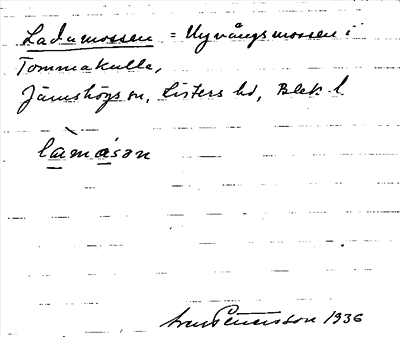 Ladumossen = Nyvångsmossen i
Tommakulle,
Jämshögs sn, Listers hd, Blek. l.
làmåsan
Sven Petersson 1936